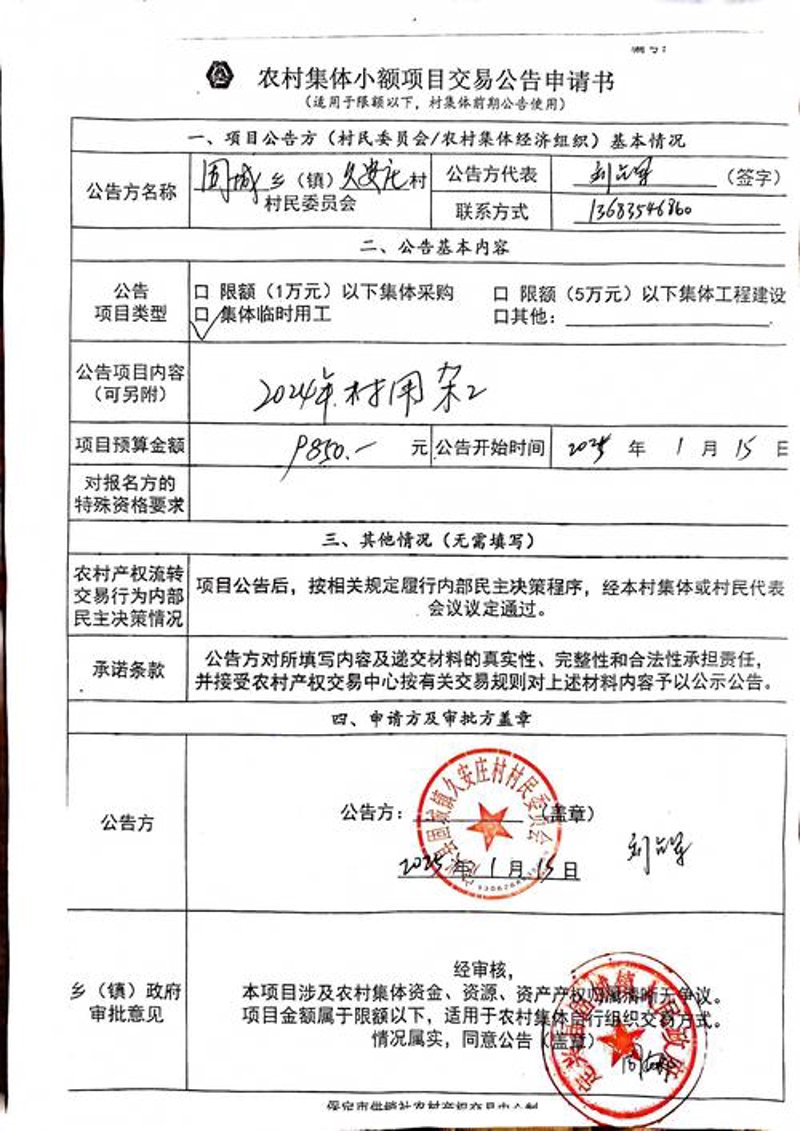 编号：
农村集体小额项目交易公告申请书
（适用于限额以下，村集体前期公告使用）
一、项目公告方（村民委员会/农村集体经济组织）基本情况
公告方名称
固城乡（镇）久安庄村
村民委员会
公告方代表
（签字）
联系方式
13683546860
二、公告基本内容
公告
项目类型
口 限额（1万元）以下集体采购
口 限额（5万元）以下集体工程建设
口 集体临时用工
口其他：
公告项目内容
（可另附）
2024年村用杂工
项目预算金额
9850.一 元
公告开始时间
2025 年 1 月 15 日
对报名方的
特殊资格要求
三、其他情况（无需填写）
农村产权流转
交易行为内部
民主决策情况
项目公告后，按相关规定履行内部民主决策程序，经本村集体或村民代表
会议议定通过。
承诺条款
公告方对所填写内容及递交材料的真实性、完整性和合法性承担责任，
并接受农村产权交易中心按有关交易规则对上述材料内容予以公示公告。
四、申请方及审批方盖章
公告方
公告方：
（盖章）
2025年 1 月 15 日
定兴县固城镇久安庄村村民委员会
乡（镇）政府
审批意见
经审核，
本项目涉及农村集体资金、资源、资产产权归属清晰无争议。
项目金额属于限额以下，适用于农村集体自行组织交易方式。
情况属实，同意公告（盖章）
定兴县固城镇人民政府
保定市供销社农村产权交易中心制